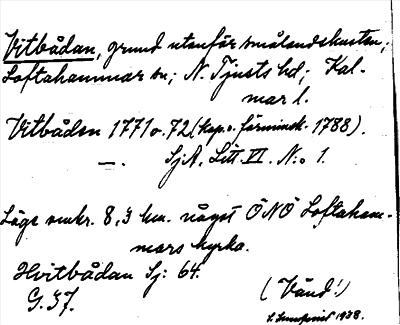 Vitbådan, grund utanför smålandskusten;
Loftahammar sn; N. Tjusts hd; Kal-
mar l.
Vitbåden 1771 o. 72 (kop. o. förminsk. 1788).
—. SjA. Litt. VI. N:o 1.
Läge omkr. 8,3 km. något ÖNÖ Loftaham-
mars kyrka.
Hvitbådan Sj: 64.
G. 37.
(Vänd!)
1938.